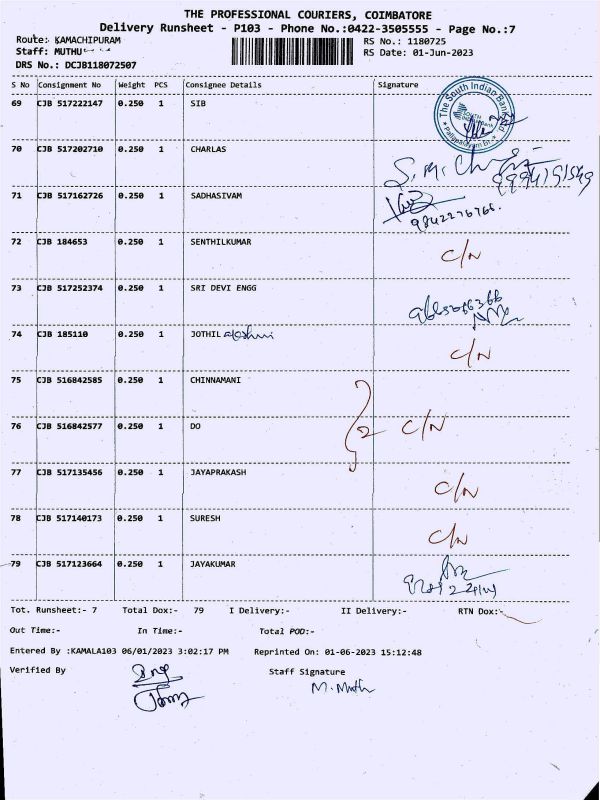 THE PROFESSIONAL COURIERS, COIMBATORE
Delivery Runsheet - P103 - Phone No.:0422-3505555 - Page No.:7
Route: KAMACHIPURAM RS No.: 1180725
Staff: MUTHU RS Date: 01-Jun-2023
DRS No.: DCJB118072507
S No Consignment No Weight PCS Consignee Details Signature
69 CJB 517222147 0.250 1 SIB
The South Indian Bank Ltd
70 CJB 517202710 0.250 1 CHARLAS
71 CJB 517162726 0.250 1 SADHASIVAM
9842276766.
72 CJB 184653 0.250 1 SENTHILKUMAR C/N
73 CJB 517252374 0.250 1 SRI DEVI ENGG
74 CJB 185110 0.250 1 JOTHIL C/N
75 CJB 516842585 0.250 1 CHINNAMANI
76 CJB 516842577 0.250 1 DO 2 C/N
77 CJB 517135456 0.250 1 JAYAPRAKASH C/N
78 CJB 517140173 0.250 1 SURESH C/N
79 CJB 517123664 0.250 1 JAYAKUMAR
Tot. Runsheet:- 7 Total Dox:- 79 I Delivery:- II Delivery:- RTN Dox:-
Out Time:- In Time:- Total POD:-
Entered By :KAMALA103 06/01/2023 3:02:17 PM Reprinted On: 01-06-2023 15:12:48
Verified By Staff Signature
M. Muth